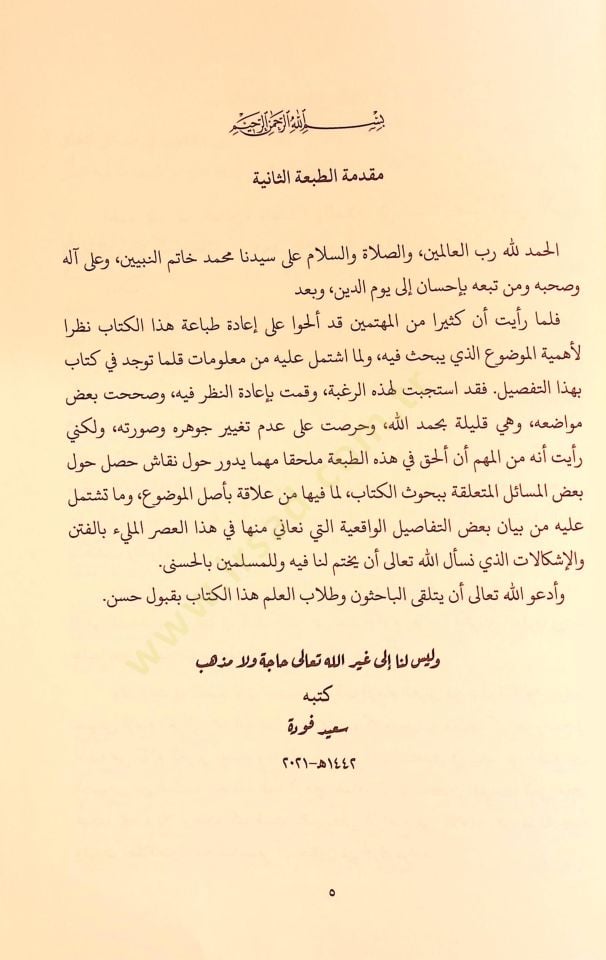 بسم الله الرحمن الرحيم
مقدمة الطبعة الثانية
الحمد لله رب العالمين، والصلاة والسلام على سيدنا محمد خاتم النبيين، وعلى آله
وصحبه ومن تبعه بإحسان إلى يوم الدين، وبعد
فلما رأيت أن كثيرا من المهتمين قد ألحوا على إعادة طباعة هذا الكتاب نظرا
لأهمية الموضوع الذي يبحث فيه، ولما اشتمل عليه من معلومات قلما توجد في كتاب
بهذا التفصيل. فقد استجبت لهذه الرغبة، وقمت بإعادة النظر فيه، وصححت بعض
مواضعه، وهي قليلة بحمد الله، وحرصت على عدم تغيير جوهره وصورته، ولكني
رأيت أنه من المهم أن ألحق في هذه الطبعة ملحقا مهما يدور حول نقاش حصل حول
بعض المسائل المتعلقة ببحوث الكتاب، لما فيها من علاقة بأصل الموضوع، وما تشتمل
عليه من بيان بعض التفاصيل الواقعية التي نعاني منها في هذا العصر المليء بالفتن
والإشكالات الذي نسأل الله تعالى أن يختم لنا فيه وللمسلمين بالحسنى.
وأدعو الله تعالى أن يتلقى الباحثون وطلاب العلم هذا الكتاب بقبول حسن.
وليس لنا إلى غير الله تعالى حاجة ولا مذهب
كتبه
سعيد فودة
١٤٤٢هـ-٢٠٢١
٥